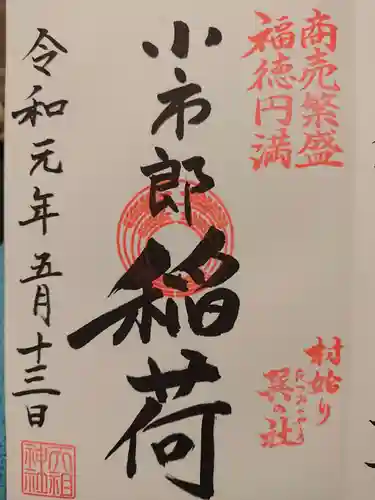 商売繁盛
福徳円満
村始り
巽の社
たつみのやしろ
小市郎稲荷
令和元年五月十三日